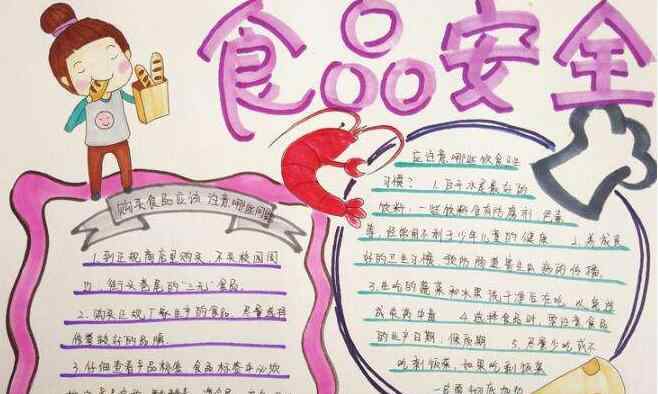 食品安全
购买食品应该注意哪些问题
1.到正规商店里购买，不买校园周
边、街头巷尾的“三无”食品。
2.购买正规厂家生产的食品，尽量选择
信誉较好的品牌
3.仔细查看产品标签。食品标签中必须
应注意哪些饮食卫生
习惯？1.白开水是最好的
饮料，一些饮料含有防腐剂、色素
等，经常饮不利于少年儿童的健康 2.养成良
好的卫生习惯 预防肠道寄生虫病的传播
3.生吃的蔬菜和水果洗干净后在吃，以免造
成农药中毒 4.选择食品时，要注意食品
的生产日期、保质期 5.尽量少吃或不
吃剩饭菜，如果吃剩饭菜
一定要彻底加热